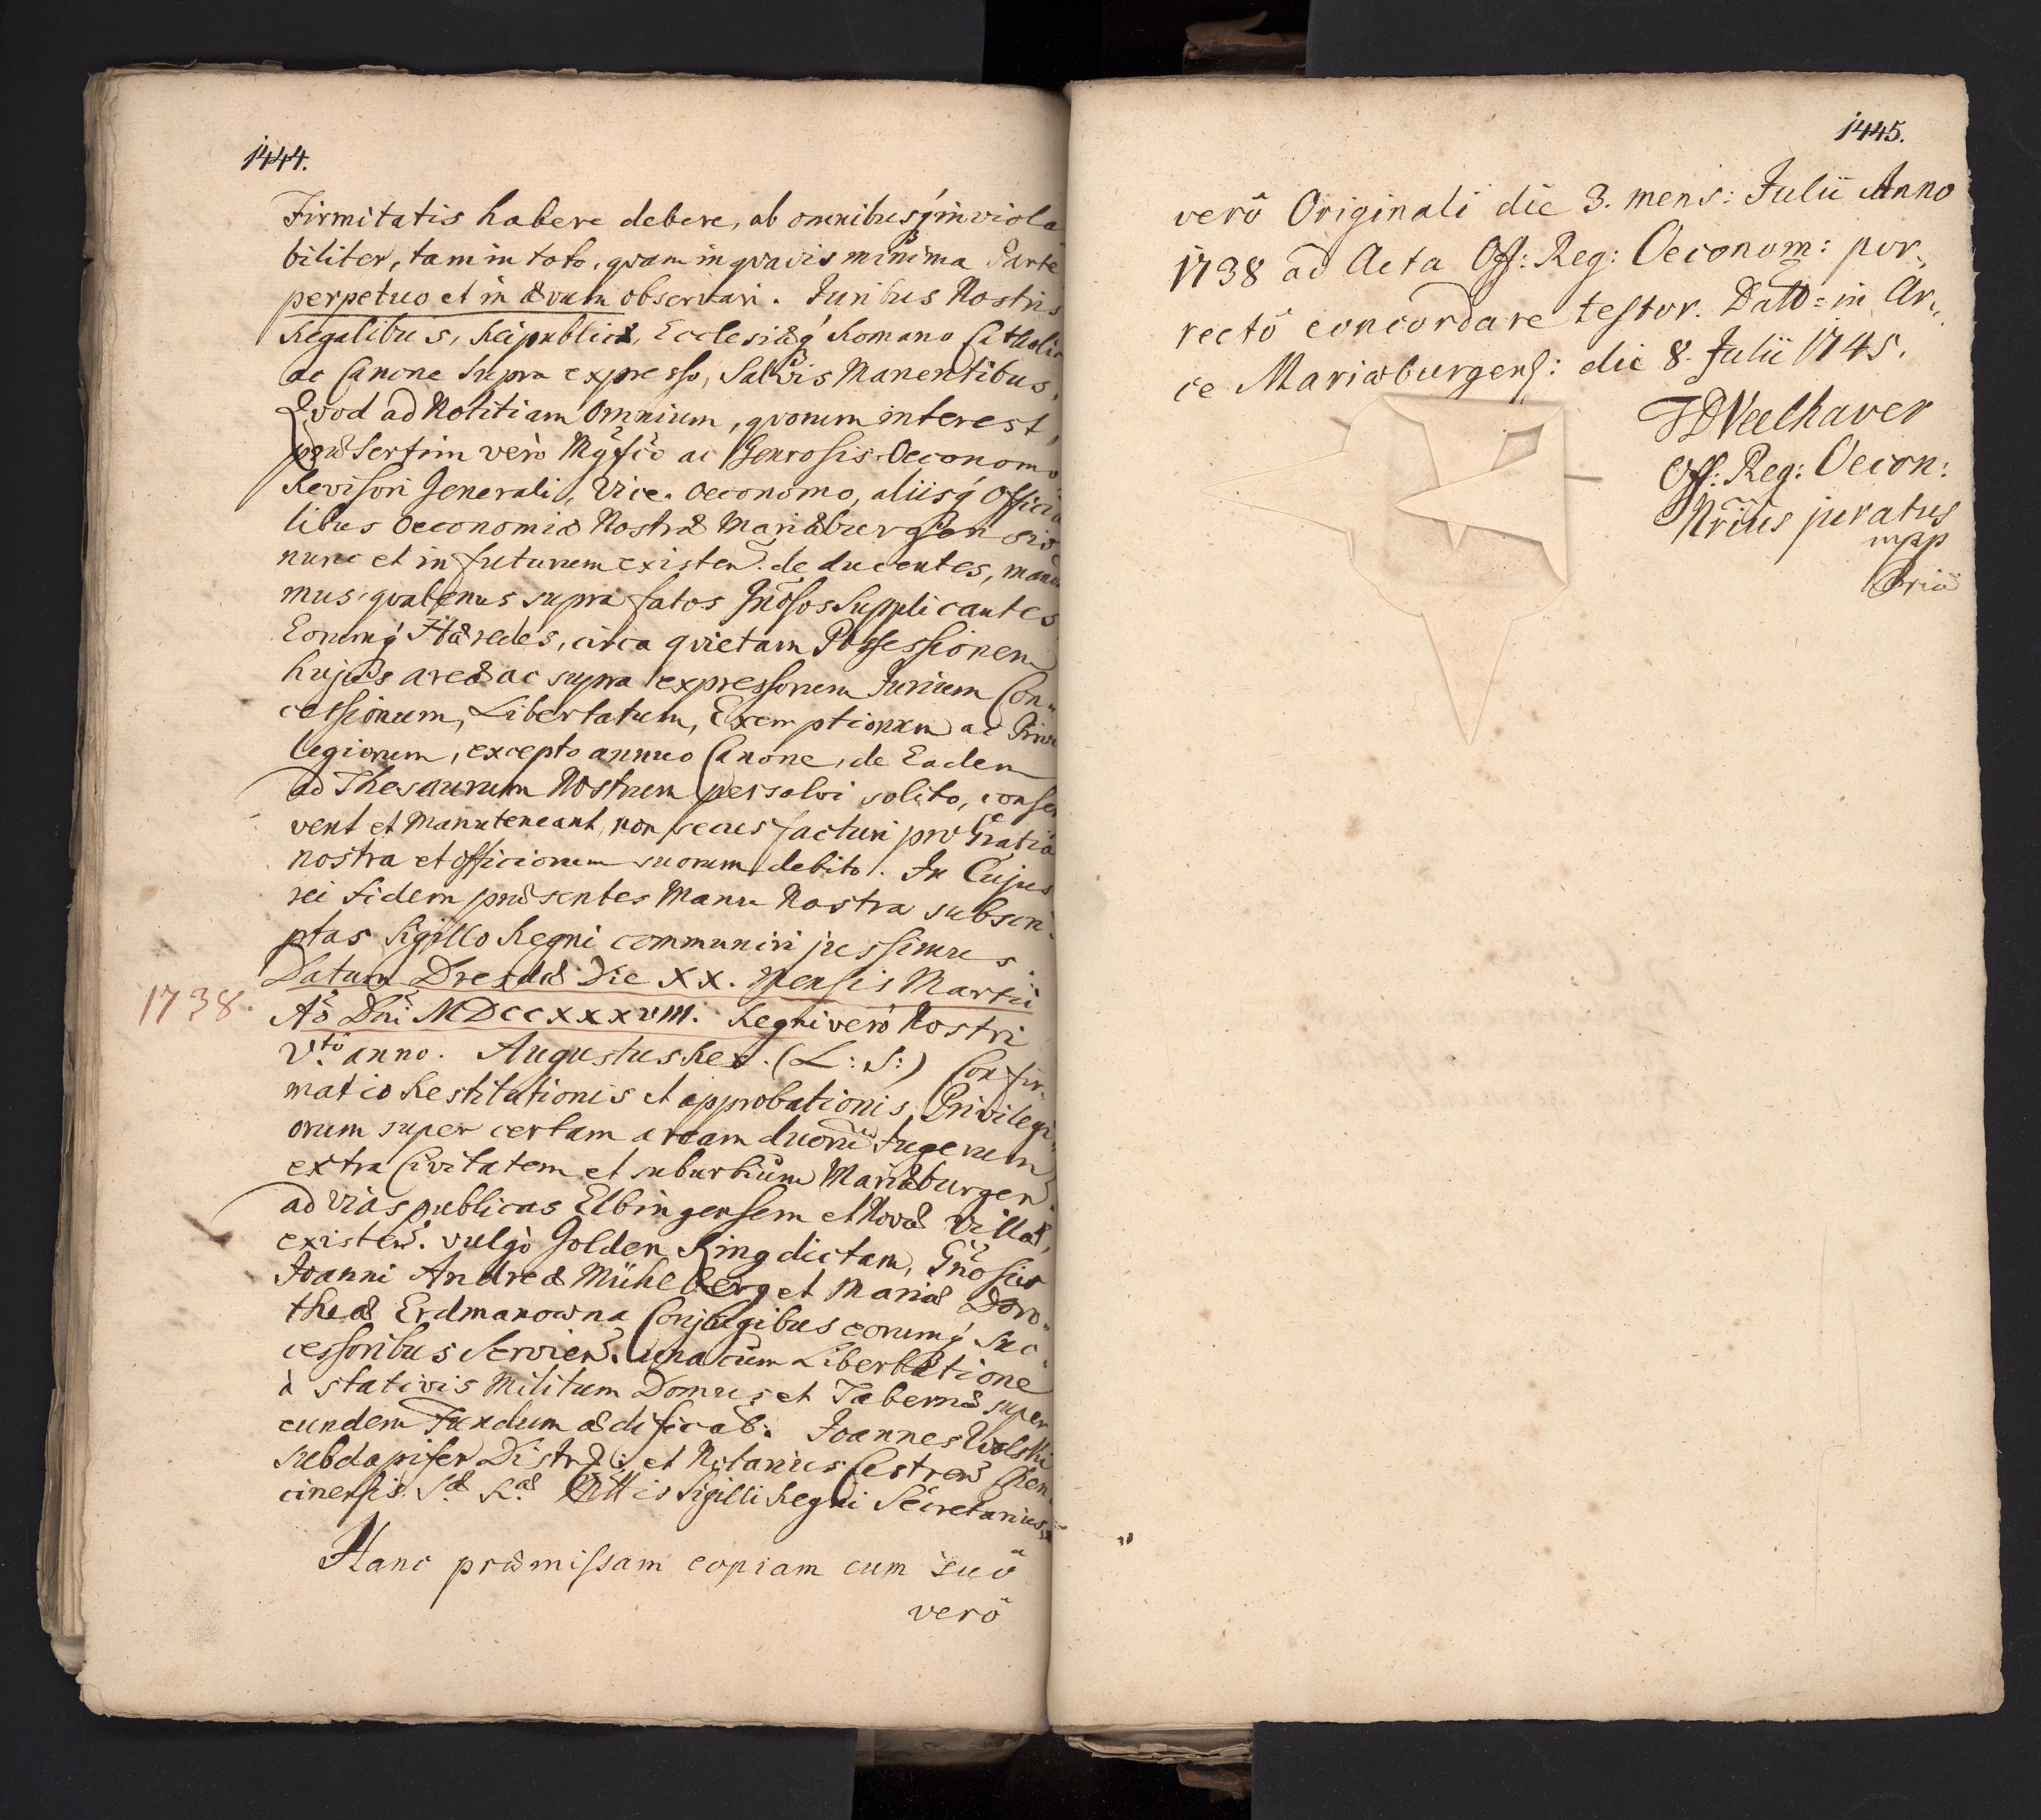 1444.
Firmitatis habere debere, ab omnibusq́ inviola
biliter, tam in toto, qvam in qvavis minima Parte
perpetuo et in ævum observari. Juribus Nostris
Regalibus, Reipublicæ, Ecclesiæq́ Romano Catholic
ac Canone supra expresso, Salvis Manentibus,
Qvod ad Notitiam Omnium, qvorum interest,
præsertim verò Mgfco ac Generosis Oeconomo
Revisori Generali, Vice-Oeconomo, aliisq́ Officia
libus Oeconomiæ Nostræ Mariæburgensis
nunc et in futurum existen. deducentes, manda
mus, qvatenus supra fatos Gnosos Supplicantes
Eorumq́ Hæredes, circa qvietam Possessionem
hujus areæ ac supra expressorum Jurium Con„
cessionum, Libertatum, Exemptionum ac Privi
legiorum, excepto annuo Canone, de Eadem
ad Thesaurum Nostrum persolvi solito, conser
vent et Manuteneant, non secus facturi pro Gratia
nostra et officiorum suorum debito. In Cujus
rei fidem præsentes Manu Nostra subscri„
ptas Sigillo Regni communiri jussimus.
Datum Dresdæ Die XX. Mensis Martii
1738.
Ao Dni MDCCXXXVIII. Regni verò Nostri
V.to anno. Augustus Rex. (L: S:) Confir„
matio Restitutionis et approbationis Privilegi„
orum super certam aream duorū Jugerum
extra Civitatem et suburbium Mariæburgen.
ad vias publicas Elbingensem et Novæ Villæ,
existen. vulgò Golden Ring dictam, Gnosis
Joanni Andreæ Mühlberg et Mariæ Doro„
theæ Erdmanowna Conjugibus eorumq́ Suc„
cessoribus Servien. una cum Libertatione
à stativis Militum Domus et Tabernæ super
eundem Fundum ædificat. Joannes Wolski
Subdapifer Districtus et Notarius Castren Chen„
cinensis. S.æ R.æ Mttis Sigilli Regni Secretarius.
Hanc præmissam copiam cum suô
verô
1445.
verô Originali die 3. mens: Julii Anno
1738 ad Acta Off: Reg: Oeconom: por„
rectô concordare testor. Datt= in Ar„
ce Mariæburgens: die 8. Julii 1745.
JDVeelhaver
Off: Reg: Oecon:
Nrius juratus
mpp